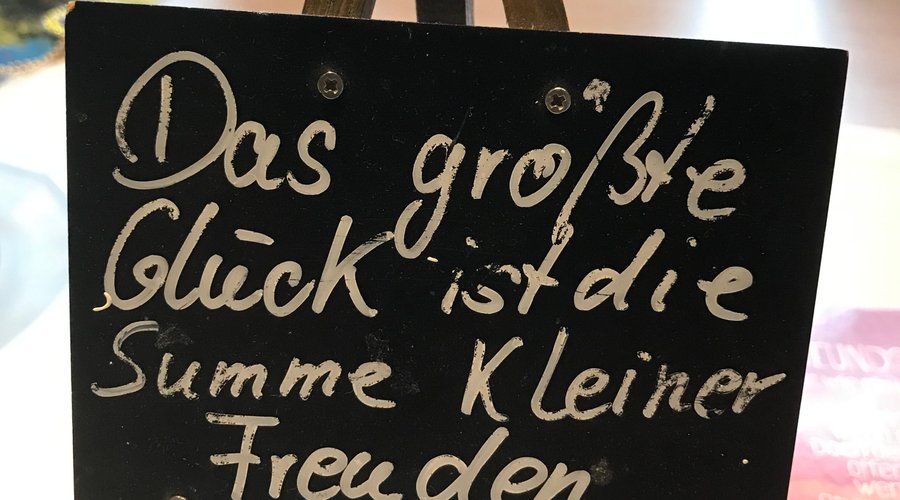 Das größte
Glück ist die
Summe kleiner
Freuden